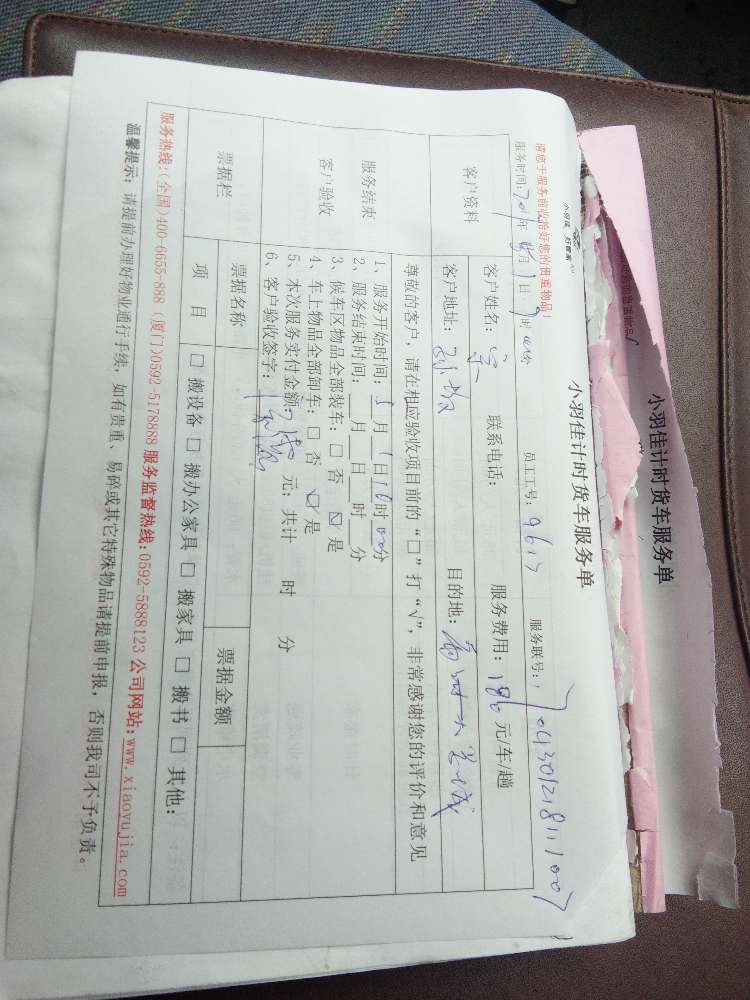 小羽佳计时货车服务单
小羽佳 好管家
小羽佳计时货车服务单
请您于服务前收拾好您的贵重物品！
服务时间： 年 月 1 日 时 分 员工工号：9617 服务联号：
客户资料 客户姓名：宋 联系电话： 服务费用：180 元/车/趟
客户地址： 目的地：
尊敬的客户，请在相应验收项目前的“□”打“√”，非常感谢您的评价和意见
服务结束
客户验收
1、服务开始时间：5月1日16时00分
2、服务结束时间： 月 日 时 分
3、候车区物品全部装车：□ 否 ☑ 是
4、车上物品全部卸车：□ 否 ☑ 是
5、本次服务实付金额： 元；共计 时 分
6、客户验收签字：
票据栏 票据名称 票据金额
项 目 □ 搬设备 □ 搬办公家具 □ 搬家具 □ 搬书 □ 其他：
服务热线：(全国)400-6655-898 (厦门)0592-5178888 服务监督热线：0592-5888123 公司网站：www.xiaoyujia.com
温馨提示：请提前办理好物业通行手续，如有贵重、易碎或其它特殊物品请提前申报，否则我司不予负责。